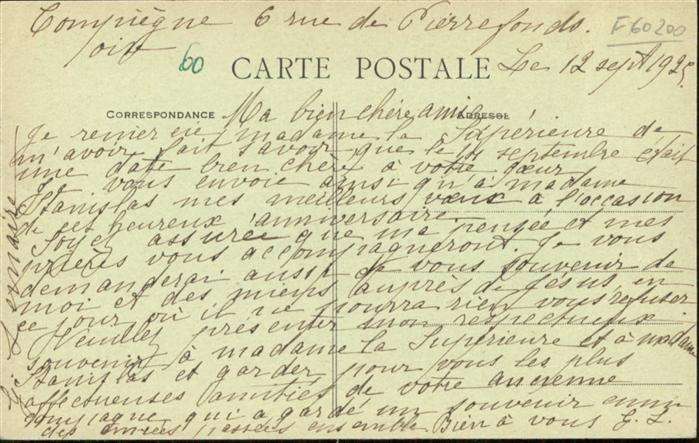 Compiègne 6 rue de Pierrefonds.
Oise
60
F60200
CARTE POSTALE
Le 12 sept 1925
CORRESPONDANCE
ADRESSE
Ma bien chère amie
Je remercie madame la Supérieure de
m'avoir fait savoir que le 14 septembre était
une date bien chère à votre cœur
Je vous envoie ainsi qu'à madame
Stanislas mes meilleurs vœux à l'occasion
de cet heureux anniversaire
Soyez assurée que ma pensée et mes
prières vous accompagneront Je vous
demanderai aussi de vous souvenir de
moi et des miens auprès de Jésus en
ce jour où il ne pourra rien vous refuser
Veuillez présenter mon respectueux
souvenir à madame la Supérieure et à madame
Stanislas et garder pour vous les plus
affectueuses amitiés de votre ancienne
compagne qui a gardé un souvenir ému
des années passées ensemble Bien à vous